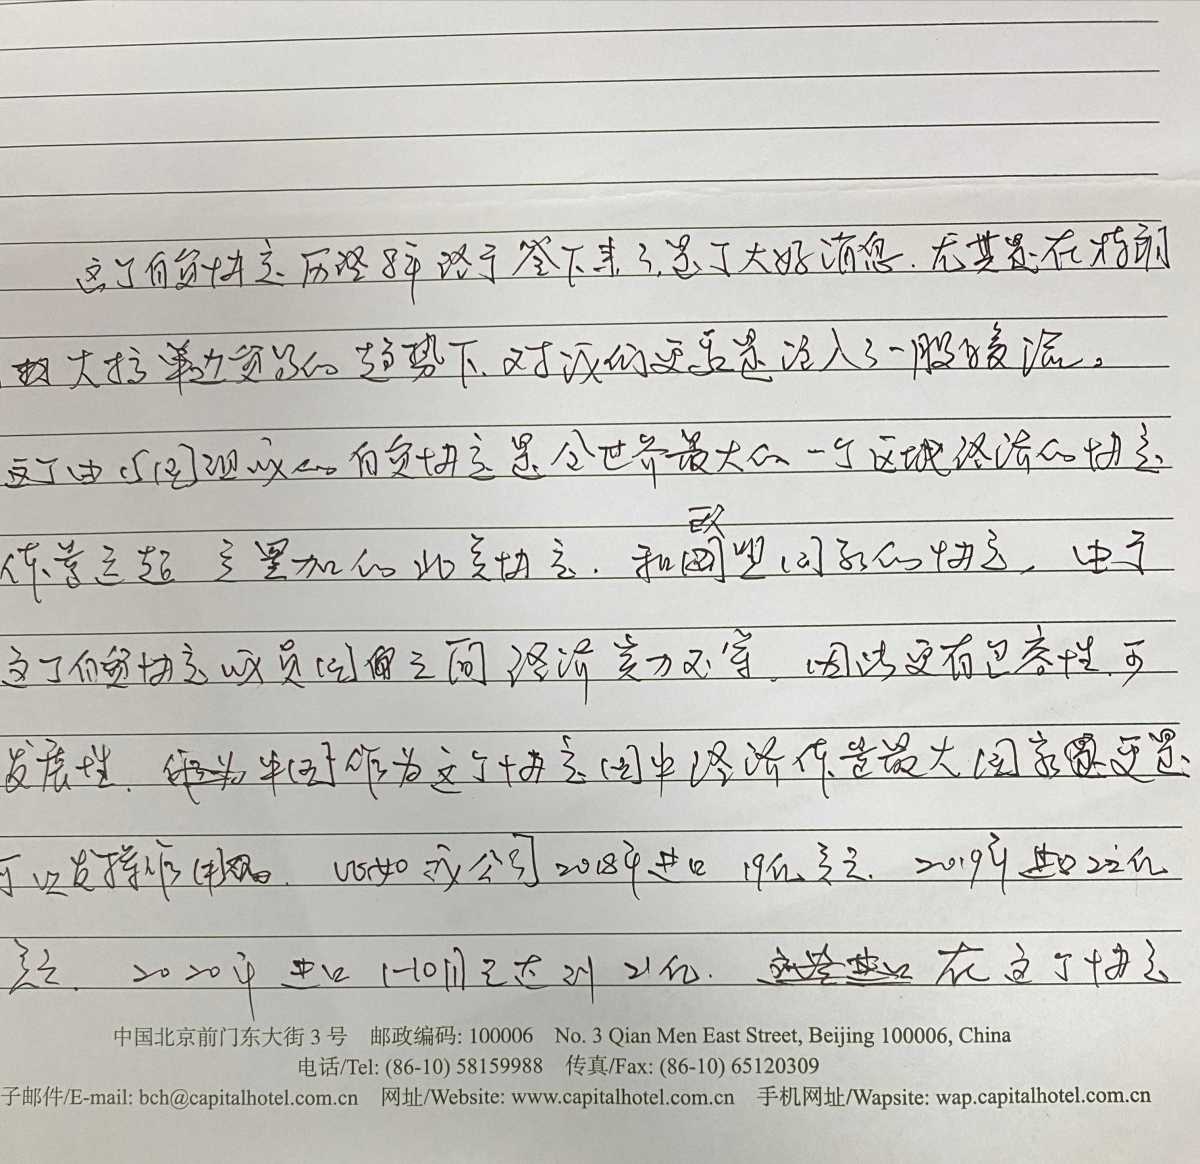 这个自贸协定历经8年终于签下来了,是个大好消息.尤其是在特朗
大搞单边贸易的趋势下,对我们更要是注入了一股暖流。
这个由15国组成的自贸协定是全世界最大的一个区域经济的协定
体量远超 美墨加的北美协定.和欧盟国家的协定,由于
这个自贸协定成员国之间经济实力不等,因此更有包容性,可
发展性. 中国作为这个协定国中经济体量最大国家更是
可以发挥作用. 我公司2018年进口19亿美元. 2019年进口22亿
美元. 2020年进口1-10月已达到21亿. 在这个协定
中国北京前门东大街 3 号 邮政编码: 100006 No. 3 Qian Men East Street, Beijing 100006, China
电话/Tel: (86-10) 58159988 传真/Fax: (86-10) 65120309
子邮件/E-mail: bch@capitalhotel.com.cn 网址/Website: www.capitalhotel.com.cn 手机网址/Wapsite: wap.capitalhotel.com.cn